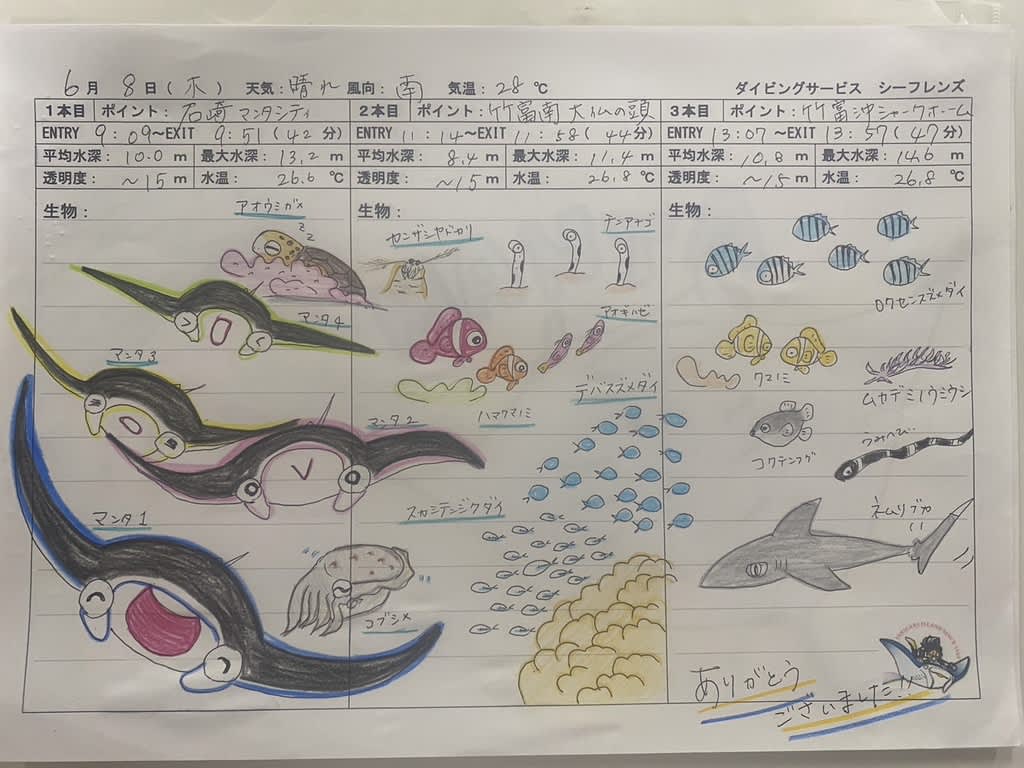 6月 8日(木) 天気:晴れ 風向:南 気温:28℃ ダイビングサービス シーフレンズ
1本目 ポイント:石崎マンタシティ
ENTRY 9:09~EXIT 9:51(42分)
平均水深:10.0m 最大水深:13.2m
透明度:~15m 水温:26.6℃
生物:
アオウミガメ
zz
マンタ4
マンタ3
マンタ2
マンタ1
コブシメ
2本目 ポイント:竹富南 大仏の頭
ENTRY 11:14~EXIT 11:58(44分)
平均水深:8.4m 最大水深:11.4m
透明度:~15m 水温:26.8℃
生物:
カンザシヤドカリ
チンアナゴ
アオギハゼ
ハマクマノミ
デバスズメダイ
スカシテンジクダイ
3本目 ポイント:竹富沖シャークホーム
ENTRY 13:07~EXIT 13:57(47分)
平均水深:10.8m 最大水深:14.6m
透明度:~15m 水温:26.8℃
生物:
ロクセンスズメダイ
クマノミ
ムカデミノウミウシ
コクテンフグ
うみへび
ネムリブカ
ありがとう
ございました!!